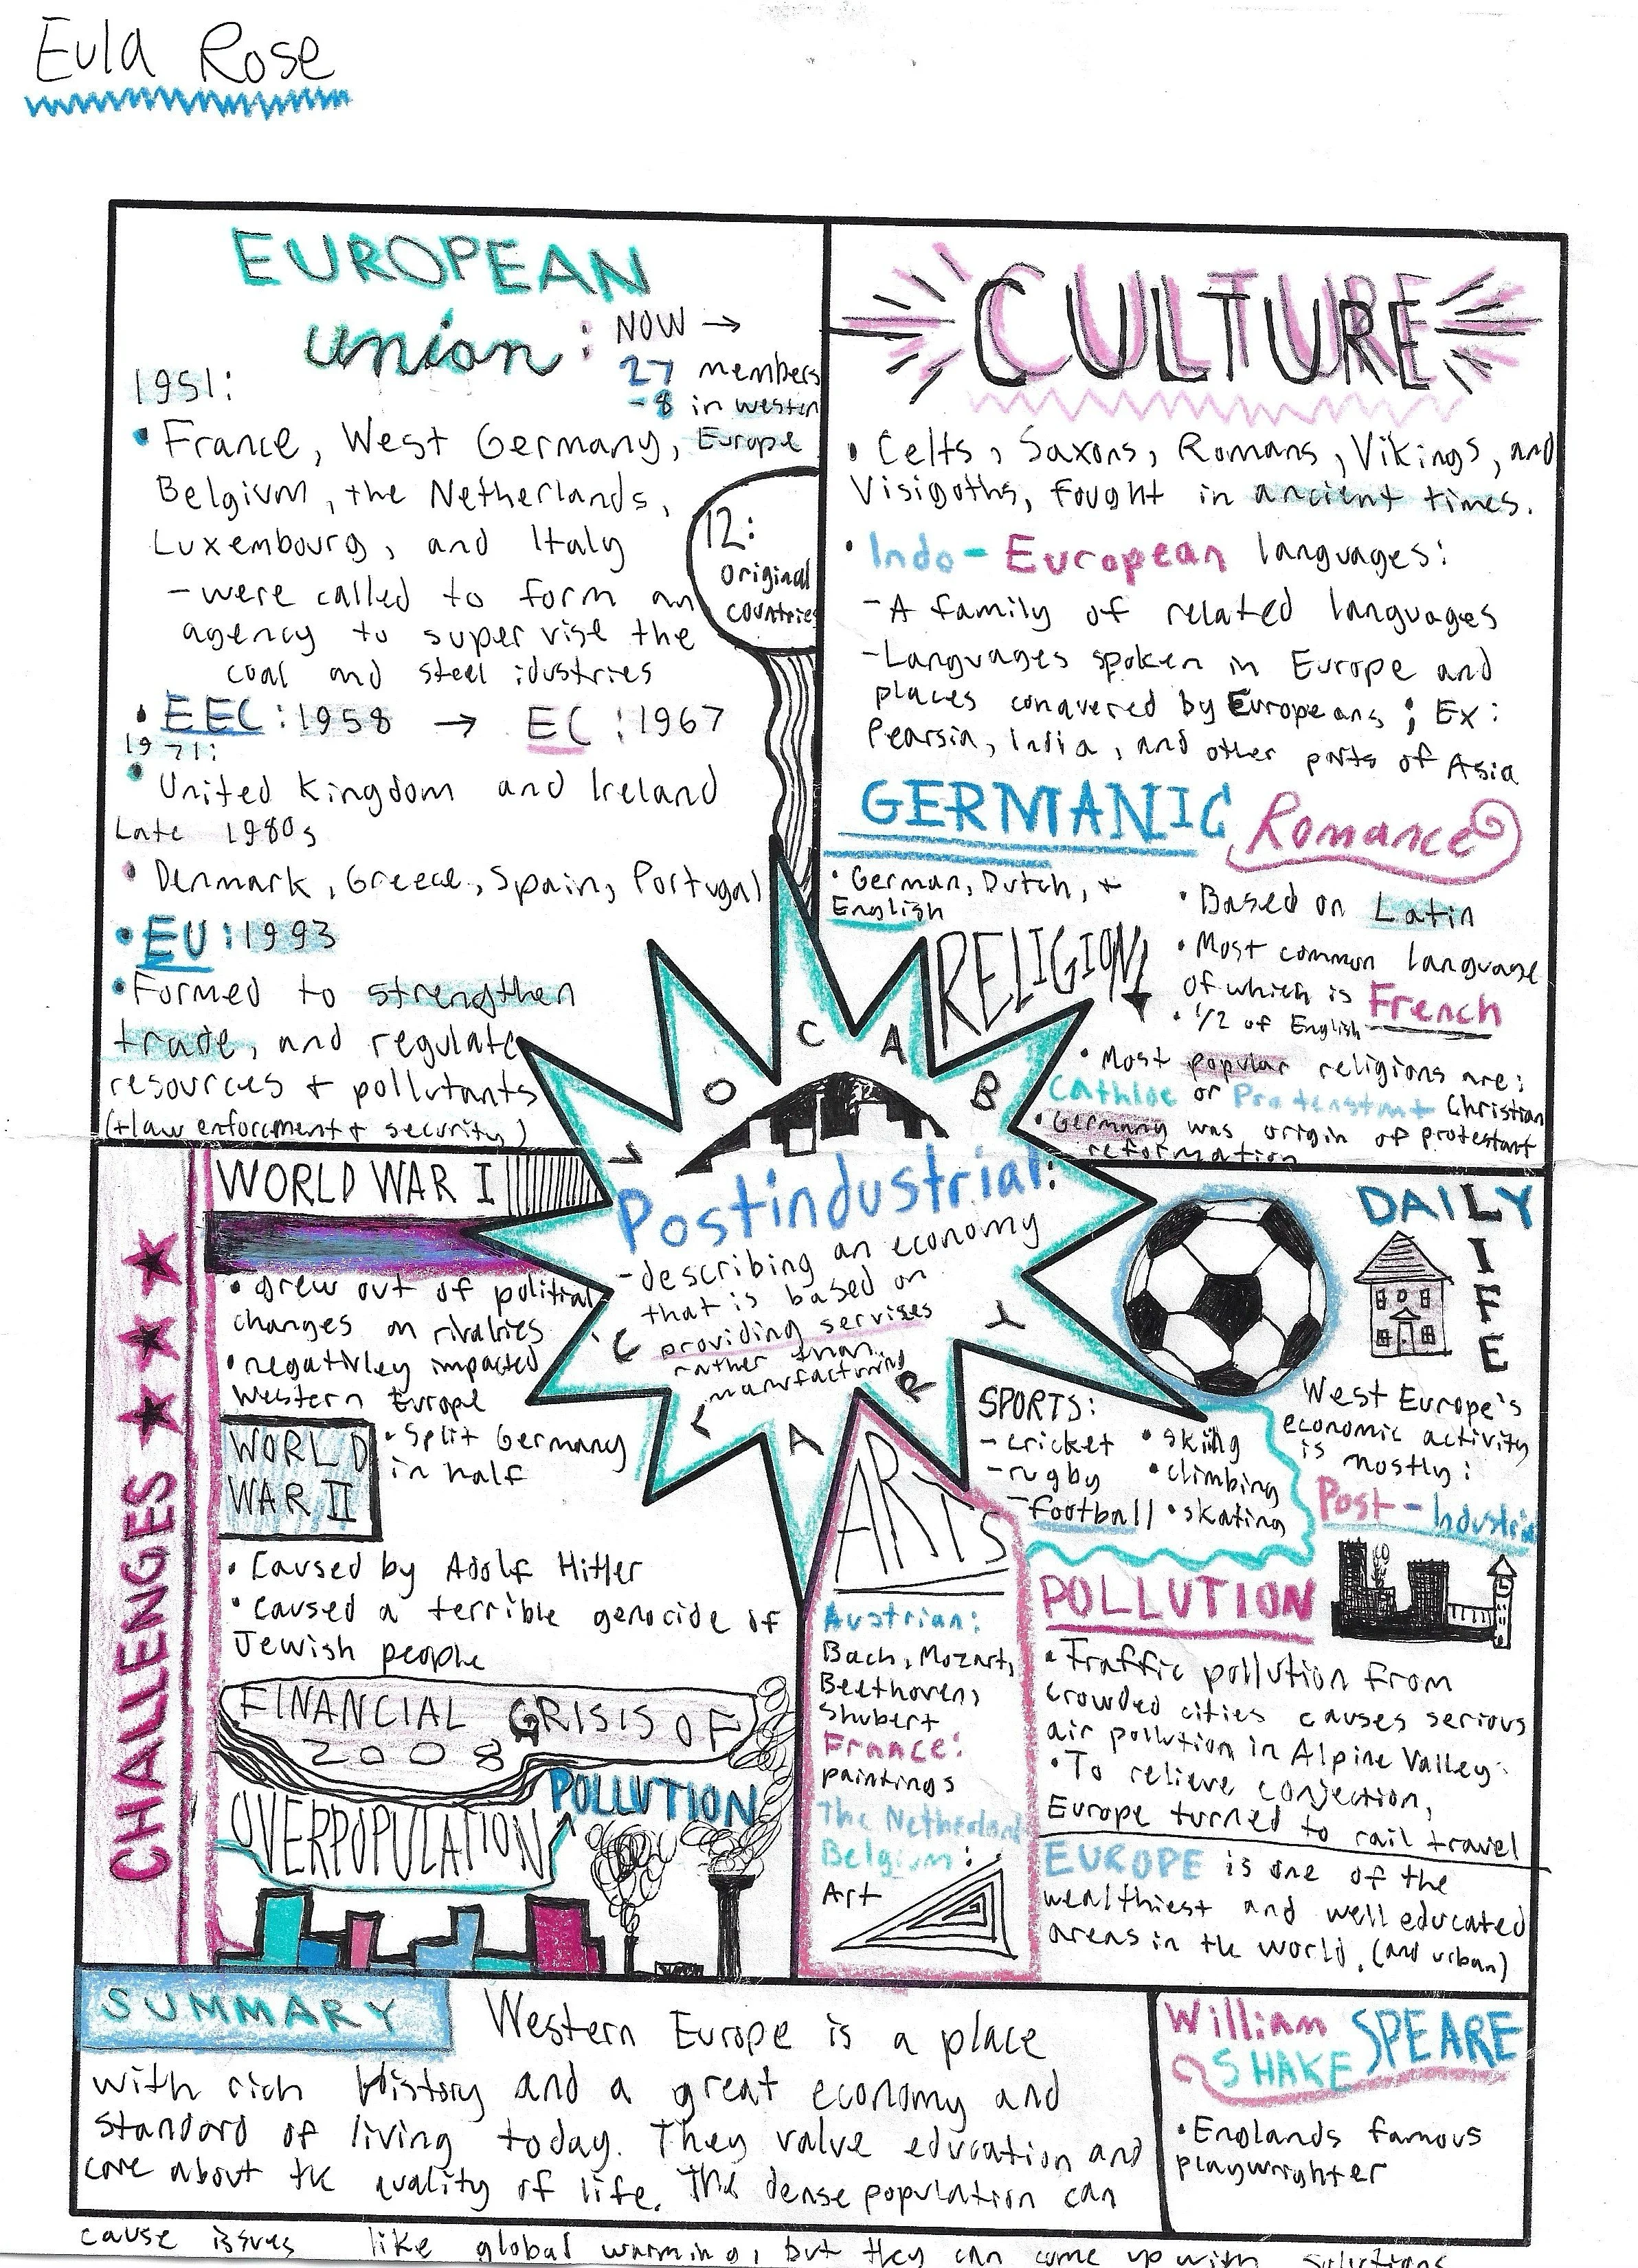 Eula Rose
EUROPEAN
union:
NOW →
27 members
-8 in western
Europe
1951:
• France, West Germany,
Belgium, the Netherlands,
Luxembourg, and Italy
- were called to form an
agency to supervise the
coal and steel idustries
12:
original
countries
• EEC: 1958 → EC: 1967
1971:
• United Kingdom and Ireland
Late 1980s
• Denmark, Greece, Spain, Portugal
• EU: 1993
• Formed to strengthen
trade, and regulate
resources + pollutants
(+law enforcment + security)
CULTURE
• Celts, Saxons, Romans, Vikings, and
Visigoths, fought in ancient times.
• Indo-European languages:
- A family of related languages
- Languages spoken in Europe and
places conquered by Europeans; Ex:
Pearsia, India, and other parts of Asia
GERMANIC
• German, Dutch, +
English
Romance
• Based on Latin
• Most common language
of which is French
• 1/2 of English
RELIGION
• Most popular religions are:
Cathloc or Protenstant Christian
• Germany was origin of protestant
reformation
VOCABULARY
Postindustrial:
- describing an economy
that is based on
providing servises
rather than
manufacturing
CHALLENGES
WORLD WAR I
• grew out of political
changes on rivalries
• negativley impacted
Western Europe
WORLD
WAR II
• Split Germany
in half
• Caused by Adolf Hitler
• Caused a terrible genocide of
Jewish people
FINANCIAL CRISIS OF
2008
OVERPOPULATION
POLLUTION
DAILY
LIFE
SPORTS:
- cricket
- rugby
- football
• skiing
• climbing
• skating
West Europe's
economic activity
is mostly:
Post-Industrial
ARTS
Austrian:
Bach, Mozart,
Beethoven,
Shubert
France:
paintings
The Netherland
Belgium:
Art
POLLUTION
• Traffic pollution from
crowded cities causes serious
air pollution in Alpine Valley.
• To relieve conjection,
Europe turned to rail travel
EUROPE is one of the
wealthiest and well educated
areas in the world. (and urban)
SUMMARY
Western Europe is a place
with rich History and a great economy and
standard of living today. They value education and
care about the quality of life. The dense population can
cause issues like global warming, but they can come up with solutions
William
SHAKESPEARE
• Englands famous
playwrighter